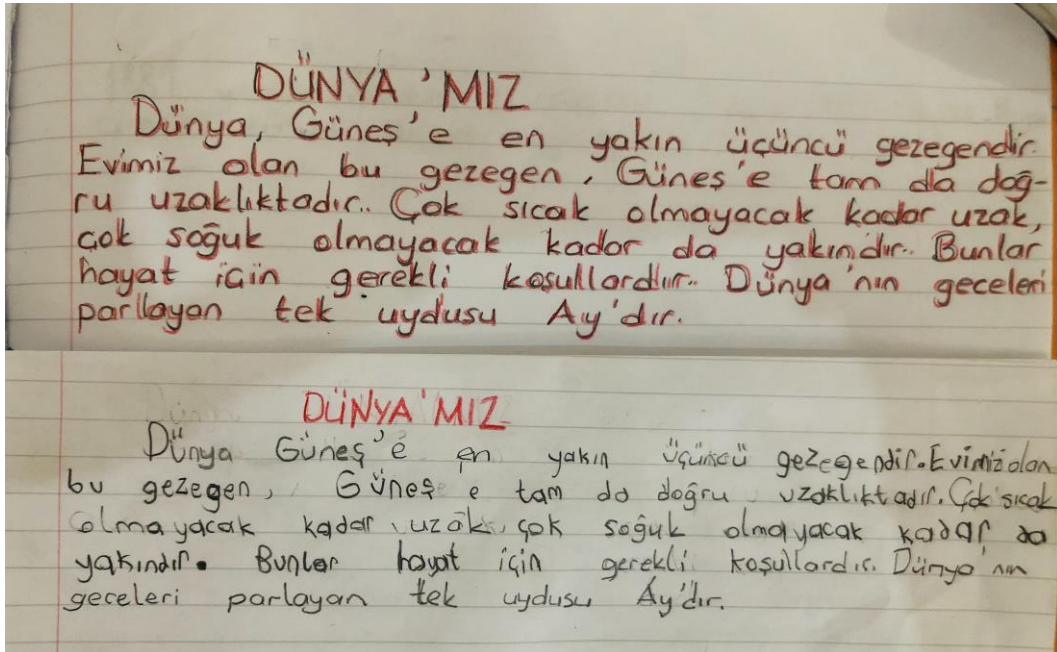 DÜNYA'MIZ
Dünya, Güneş'e en yakın üçüncü gezegendir.
Evimiz olan bu gezegen, Güneş'e tam da doğ-
ru uzaklıktadır. Çok sıcak olmayacak kadar uzak,
çok soğuk olmayacak kadar da yakındır. Bunlar
hayat için gerekli koşullardır. Dünya'nın geceleri
parllayan tek uydusu Ay'dır.
DÜNYA'MIZ
Dünya Güneş'e en yakın üçüncü gezegendir. Evimiz olan
bu gezegen, Güneş e tam da doğru uzaklıktadır. Çok sıcak
olmayacak kadar uzak, çok soğuk olmayacak kadar da
yakındır. Bunlar hayat için gerekli koşullardır. Dünya'nın
geceleri parlayan tek uydusu Ay'dır.